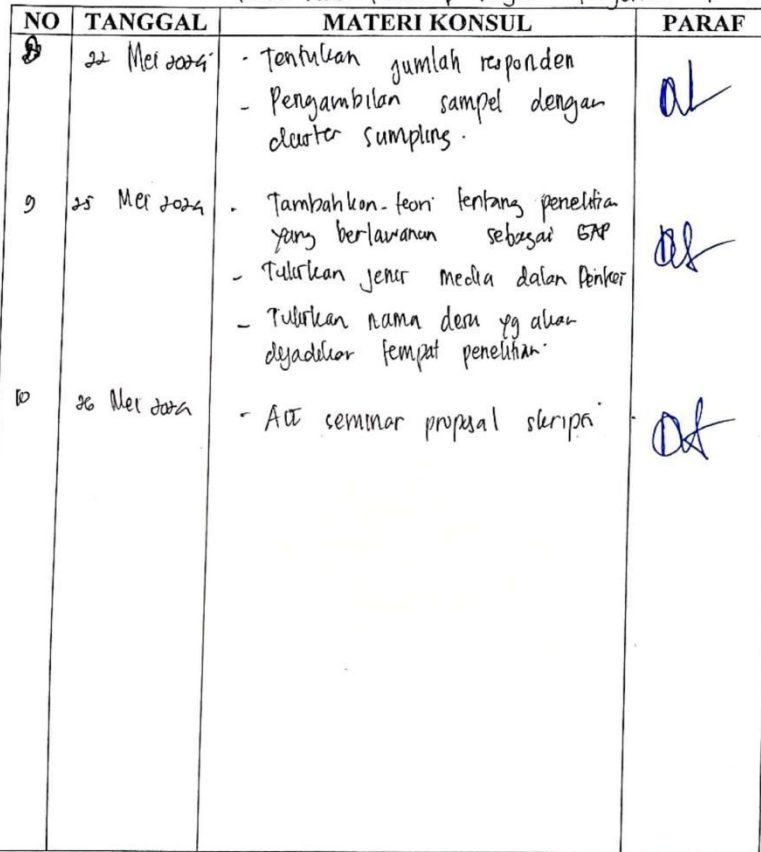 NO TANGGAL MATERI KONSUL PARAF
8 22 Mei 2024 - Tentukan jumlah responden
- Pengambilan sampel dengan
cluster sampling.
9 25 Mei 2024 - Tambahkan teori tentang penelitian
yang berlawanan sebagai GAP
- Tuliskan jenis media dalam
- Tuliskan nama desa yg akan
dijadikan tempat penelitian.
10 26 Mei 2024 - ACC seminar proposal skripsi